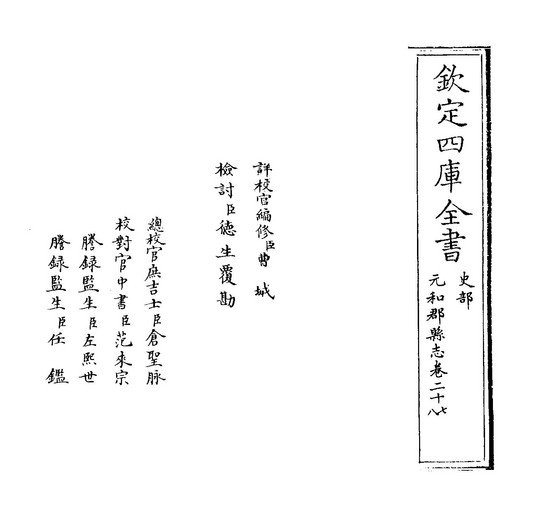 欽定四庫全書
史部
元和郡縣志卷二十七八
詳校官編修臣曹城
檢討臣德生覆勘
總校官庶吉士臣倉聖脉
校對官中書臣范來宗
謄錄監生臣左熙世
謄錄監生臣任鑑